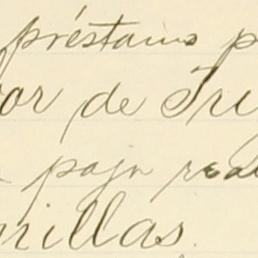 préstamo p
or de Tri
paga rea
rillas